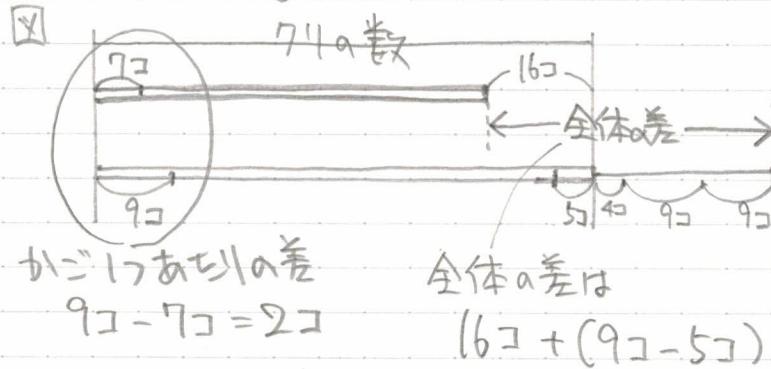 図
クリの数
7コ
16コ
全体の差
9コ
5コ 4コ 9コ 9コ
かご1つあたりの差
9コ-7コ=2コ
全体の差は
16コ+(9コ-5コ)